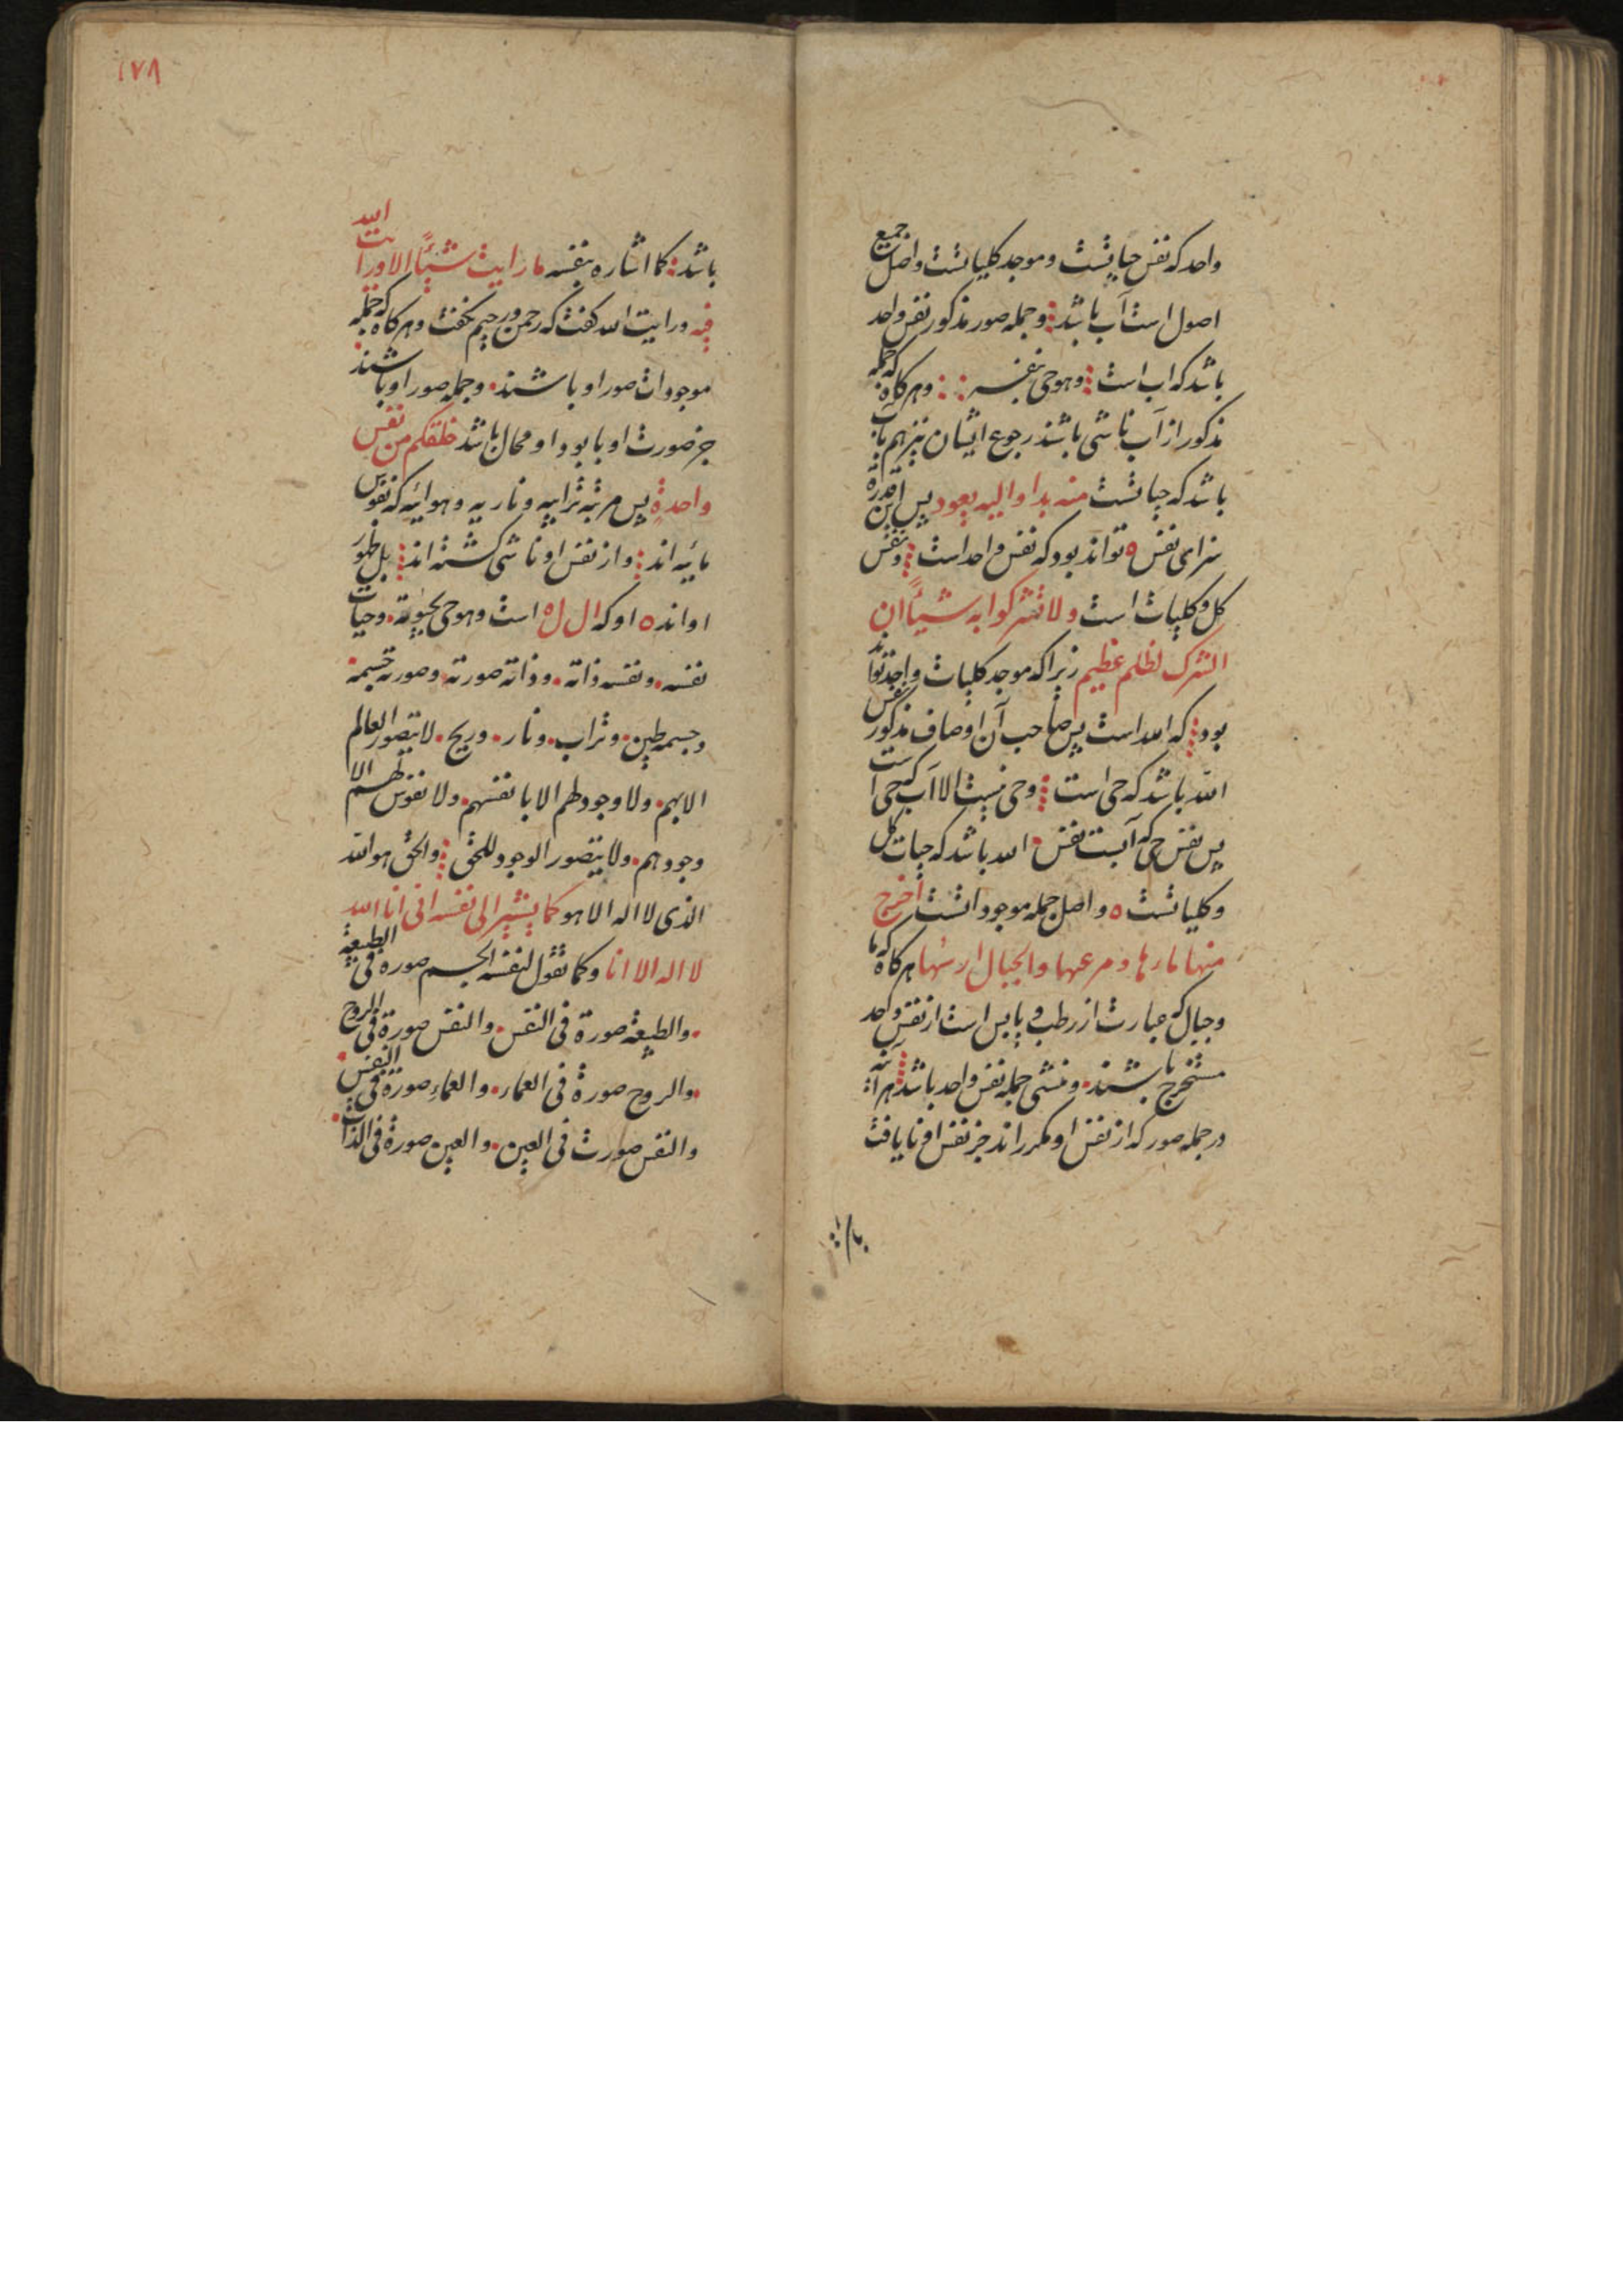 واحد که نفس حیاتست و موجد کلیاتست و اصل جمیع
اصول است آب باشد و جمله صور مذکور نفس واحد
باشد که اب است وهو حی بنفسه و هر کاه که جمله
مذکور از آب ناشی باشند رجوع ایشان نیز هم باب
باشد که حیاتست منه بدا والیه یعود پس این قدرة
سزای نفس ه تواند بود که نفس واحد است و نفس
کل و کلیات است ولا تشرکوا به شیئاً ان
الشرک لظلم عظیم زیرا که موجد کلیات واحد تواند
بود که الله است پس صاحب آن اوصاف مذکور نفس
الله باشد که حی است وحی نیست الا آب که حی است
پس نفس حی که آبست نفس الله باشد که حیات کل
و کلیاتست ه و اصل جمله موجوداتست اخرج
منها ماءها ومرعیها والجبال ارسیها هر کاه که ما
و جبال که عبارت از رطب و یابس است از نفس واحد
مستخرج باشند و منشی جمله نفس واحد باشد هر آئینه
در جمله صور که از نفس او مکررا اند جز نفس او نا یافت
۱۷۸
باشد کما اشاره بنفسه ما رایت شیئاً الا ورایت الله
فیه ورایت الله کفت که رحمن و رحیم نکفت و هر کاه که جمله
موجودات صور او باشند و جمله صور او با شند
جز صورت او یا بود او محال باشد خلقکم من نفس
واحدةٍ پس مرتبه ترابیه و ناریه و هوائیه که نفوس
مائیه اند و از نفس او ناشی کشته اند بل ظهور
او اند ه او که ال ل ه است وهو حی بحیوته وحیات
نفسه ونفسه ذاته وذاته صورته وصورته جسمه
وجسمه طین وتراب ونار وریح لا یتصور العالم
الا بهم ولا وجود لهم الا بانفسهم ولا نفوس لهم الا
وجودهم ولا یتصور الوجود للحق والحق هو الله
الذی لا اله الا هو کما یشیر الی نفسه انی انا الله
لا اله الا انا وکما نقول لنفسه الجسم صورة فی الطبیعة
والطبیعة صورة فی النفس والنفس صورة فی الروح
والروح صورة فی العماء والعماءِ صورة فی النفس
والنفس صورت فی العین والعین صورة فی الذات